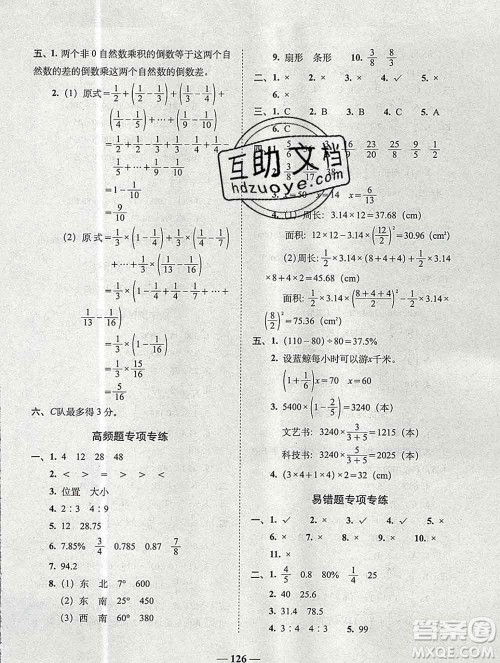 五、1. 两个非0自然数乘积的倒数等于这两个自
然数的差的倒数乘这两个自然数的倒数差。
2. (1) 原式 = 1/2 + (1/2 - 1/3) + (1/3 - 1/4) +
(1/4 - 1/5) + (1/5 - 1/6) + ⋯ + (1/9 - 1/10)
= 1/2 + 1/2 - 1/3 + 1/3 - 1/4 + 1/4 - 1/5 +
1/5 + ⋯ + 1/9 - 1/10
= 1 - 1/10
= 9/10
(2) 原式 = 1/3 × (1 - 1/4) + 1/3 × (1/4 - 1/7) +
1/3 × (1/7 - 1/10) + ⋯ + 1/3 × (1/13 - 1/16)
= 1/3 × (1 - 1/4 + 1/4 - 1/7 + 1/7 - 1/10 + ⋯ +
1/13 - 1/16)
= 1/3 × (1 - 1/16)
= 1/3 × 15/16
= 5/16
六、C队最多得3分。
高频题专项专练
一、1. 4 12 28 48
2. >
3. 位置 大小
4. 2∶3 4∶9
5. 12 28.75
6. 7.85% 3/4 0.785 0.87 7/8
7. 94.2
8. (1) 东 北 7° 600
(2) 东 南 20° 680
(3) 西 南 31° 500
9. 扇形 条形 10. 3/8 3/8
二、1. × 2. × 3. × 4. ✓ 5. ×
6. ×
三、1. C 2. C 3. C 4. A 5. A
6. C
16/23 9/20 5/8 15/28
x = 50 x = 14 x = 6/13
4. (1) 周长: 3.14 × 12 = 37.68 (cm)
面积: 12 × 12 - 3.14 × (12/2)² = 30.96 (cm²)
(2) 周长: 1/2 × 3.14 × (8+4+4) + 1/2 × 3.14
× 8 + 4 × 2 = 45.68 (cm)
面积: 1/2 × 3.14 × ((8+4+4)/2)² - 1/2 × 3.14 ×
(8/2)² = 75.36 (cm²)
五、1. (110 - 80) ÷ 80 = 37.5%
2. 设蓝鲸每小时可以游x千米。
(1 + 1/6) x = 70 x = 60
3. 5400 × (1 - 2/5) = 3240 (本)
文艺书: 3240 × 5/(5+4) = 1800 (本)
科技书: 3240 × 4/(5+4) = 1440 (本)
4. (3×4) × (2×4) × (1×4) = 384 (cm³)
易错题专项专练
一、1. ✓ 2. × 3. ✓ 4. ✓ 5. ×
6. × 7. × 8. ✓ 9. × 10. ×
11. ×
二、1. 4/5 0.8 1/4 25
2. 31.4 78.5
3. 3∶4 4∶3 5. 99
126
互助文档
hdzuoye.com
答案圈
MXQE.COM